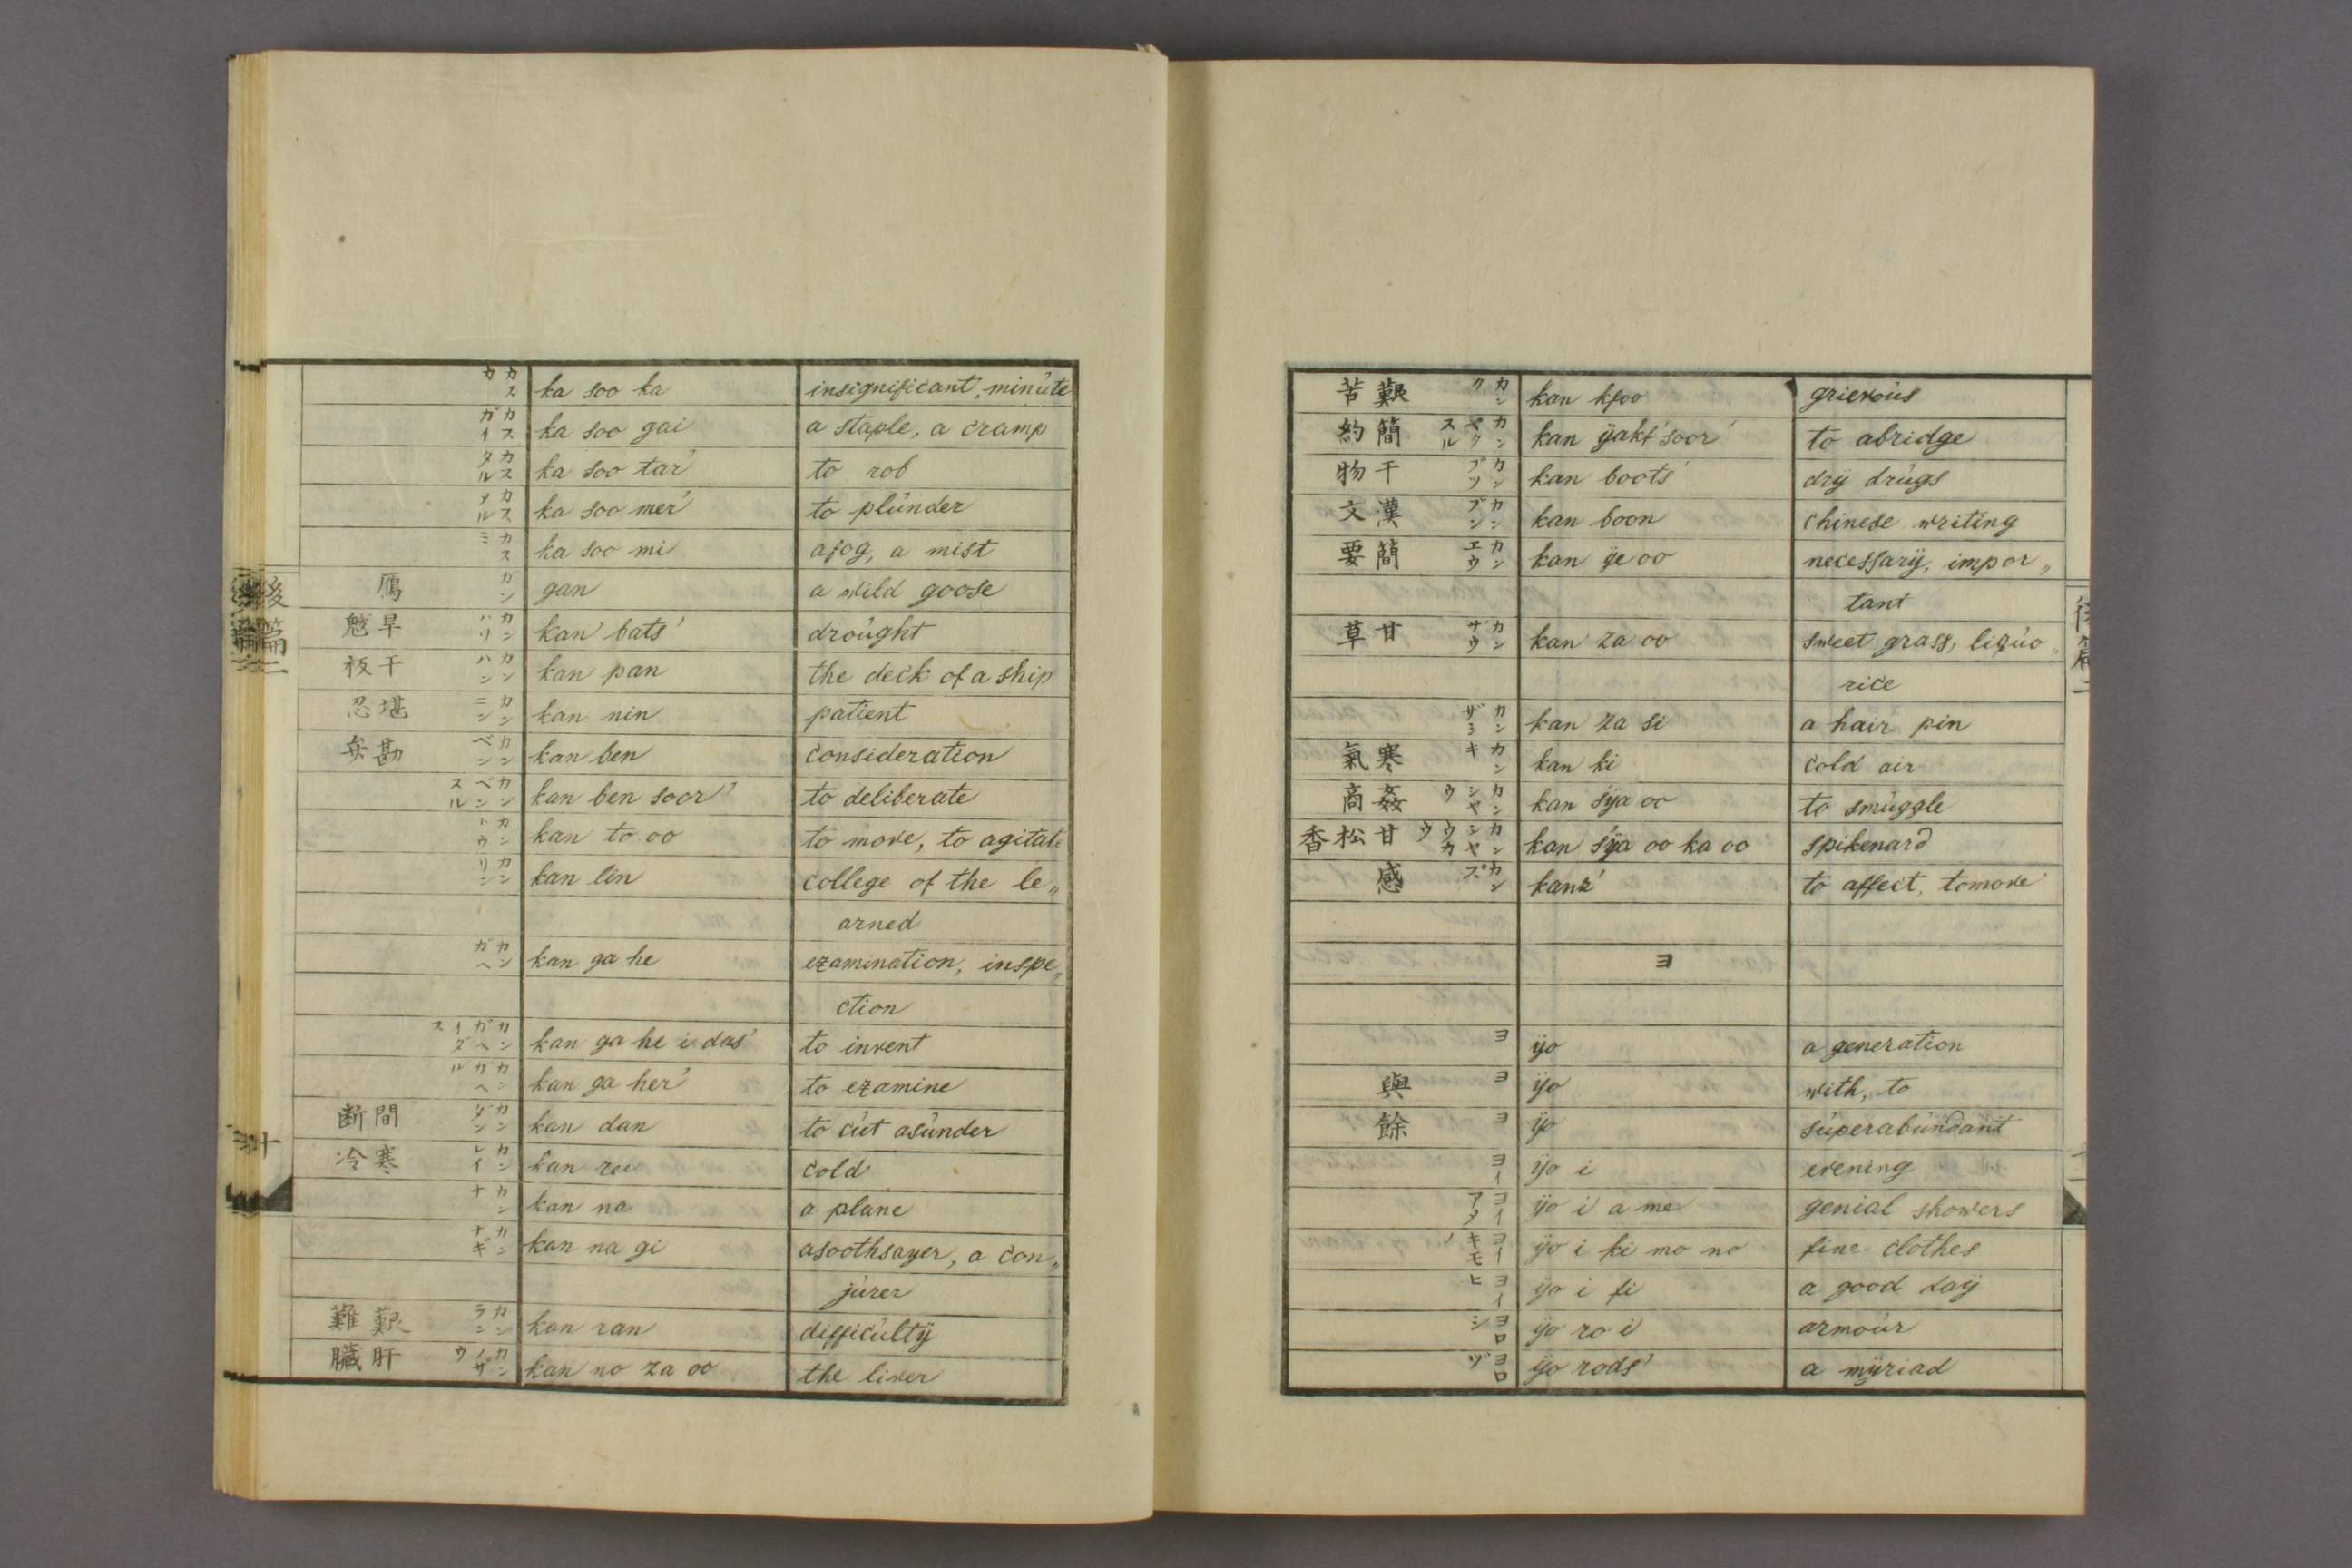 カスカ ka soo ka insignificant, minúte
カスガイ ka soo gai a staple, a cramp
カスタル ka soo tar' to rob
カスメル ka soo mer' to plúnder
カスミ ka soo mi afog, a mist
鴈 ガン gan a wild goose
魃旱 カンハツ kan bats' droúght
板干 カンハン kan pan the deck of a ship
忍堪 カンニン kan nin patient
弁勘 カンベン kan ben consideration
カンベンスル kan ben soor' to deliberate
カントウ kan to oo to move, to agitate
カンリン kan lin college of the le„
arned
カンガヘ kan ga he examination, inspe„
ction
カンガヘイダス kan ga he i das' to invent
カンガヘル kan ga her' to examine
断間 カンダン kan dan to cút asúnder
冷寒 カンレイ kan rei cold
カンナ kan na a plane
カンナギ kan na gi asoothsayer, a con„
júrer
難艱 カンラン kan ran difficúltÿ
臓肝 カンノザウ kan no za oo the liver
後篇二
十
苦艱 カンク kan kfoo grievoús
約簡 カンヤクスル kan ÿakf'soor' to abridge
物干 カンブツ kan boots' drÿ drúgs
文漢 カンブン kan boon chinese writing
要簡 カンエウ kan ÿe oo necessarÿ, impor„
tant
草甘 カンザウ kan za oo sweet grass, liqúo„
rice
カンザシ kan za si a hair pin
氣寒 カンキ kan ki cold air
商姦 カンシヤウ kan sÿa oo to smúggle
香松甘 カンシヤウカウ kan sÿa oo ka oo spikenard
感 カンズ kanz' to affect, tomove
ヨ
ヨ ÿo a generation
與 ヨ ÿo with, to
餘 ヨ ÿo súperabúndant
ヨイ ÿo i evening
ヨイアメ ÿo i a me genial showers
ヨイキモノ ÿo i ki mo no fine clothes
ヨイヒ ÿo i fi a good daÿ
ヨロシ ÿo ro i armoúr
ヨロヅ ÿo rods' a mÿriad